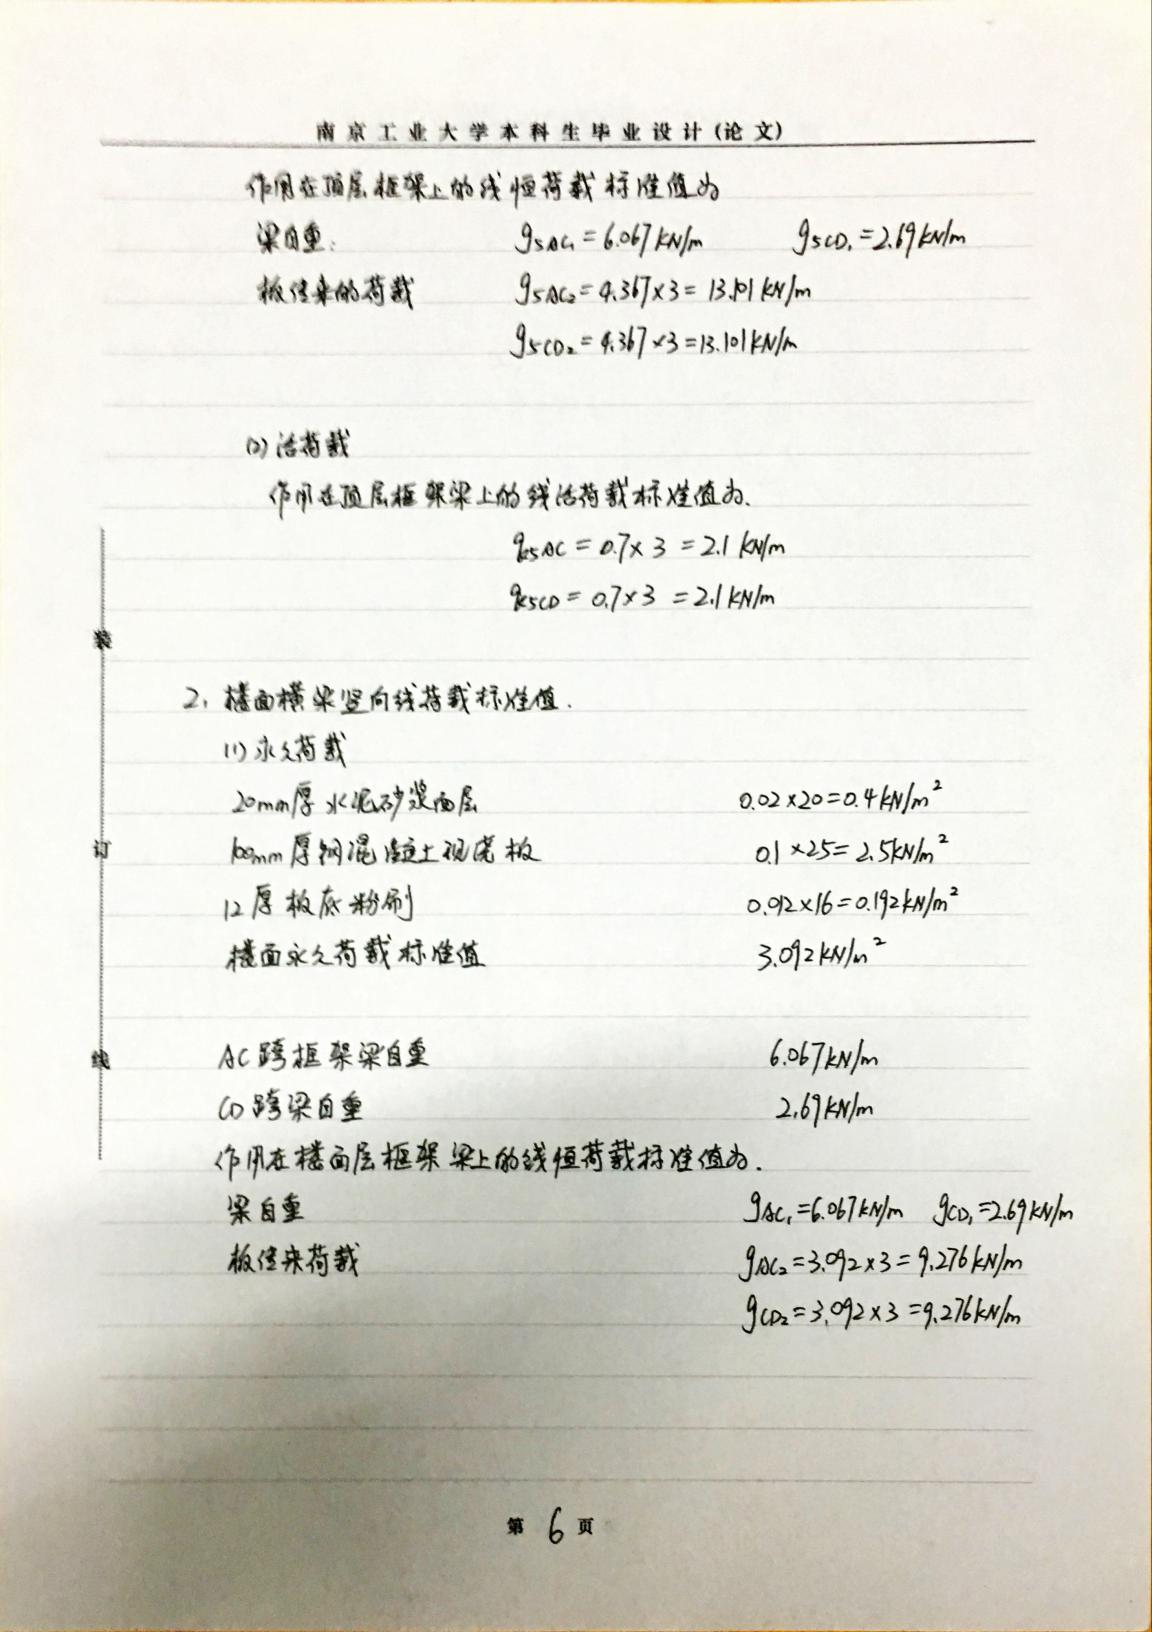 南京工业大学本科生毕业设计(论文)
作用在顶层框架上的线恒荷载标准值为
梁自重: g5AC1=6.067kN/m g5CD1=2.69kN/m
板传来的荷载 g5AC2=4.367×3=13.101kN/m
g5CD2=4.367×3=13.101kN/m
(2)活荷载
作用在顶层框架梁上的线活荷载标准值为.
qk5AC=0.7×3=2.1kN/m
qk5CD=0.7×3=2.1kN/m
装
2. 楼面横梁竖向线荷载标准值.
(1)永久荷载
20mm厚水泥砂浆面层 0.02×20=0.4kN/m²
订
100mm厚钢混凝土现浇板 0.1×25=2.5kN/m²
12厚板底粉刷 0.012×16=0.192kN/m²
楼面永久荷载标准值 3.092kN/m²
线
AC跨框架梁自重 6.067kN/m
CD跨梁自重 2.69kN/m
作用在楼面层框架梁上的线恒荷载标准值为.
梁自重 gAC1=6.067kN/m gCD1=2.69kN/m
板传来荷载 gAC2=3.092×3=9.276kN/m
gCD2=3.092×3=9.276kN/m
第 6 页